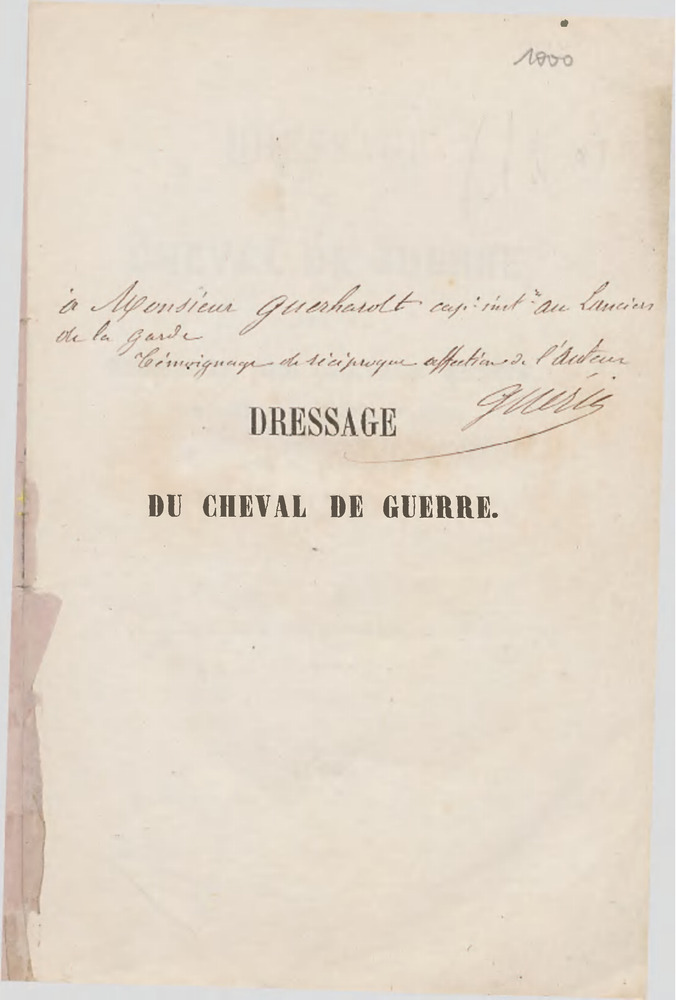 1000
à Monsieur Guerhardt cap: inst.r au Lanciers
de la garde
Témoignage de réciproque affection de l'Auteur
Guérin
DRESSAGE
DU CHEVAL DE GUERRE.